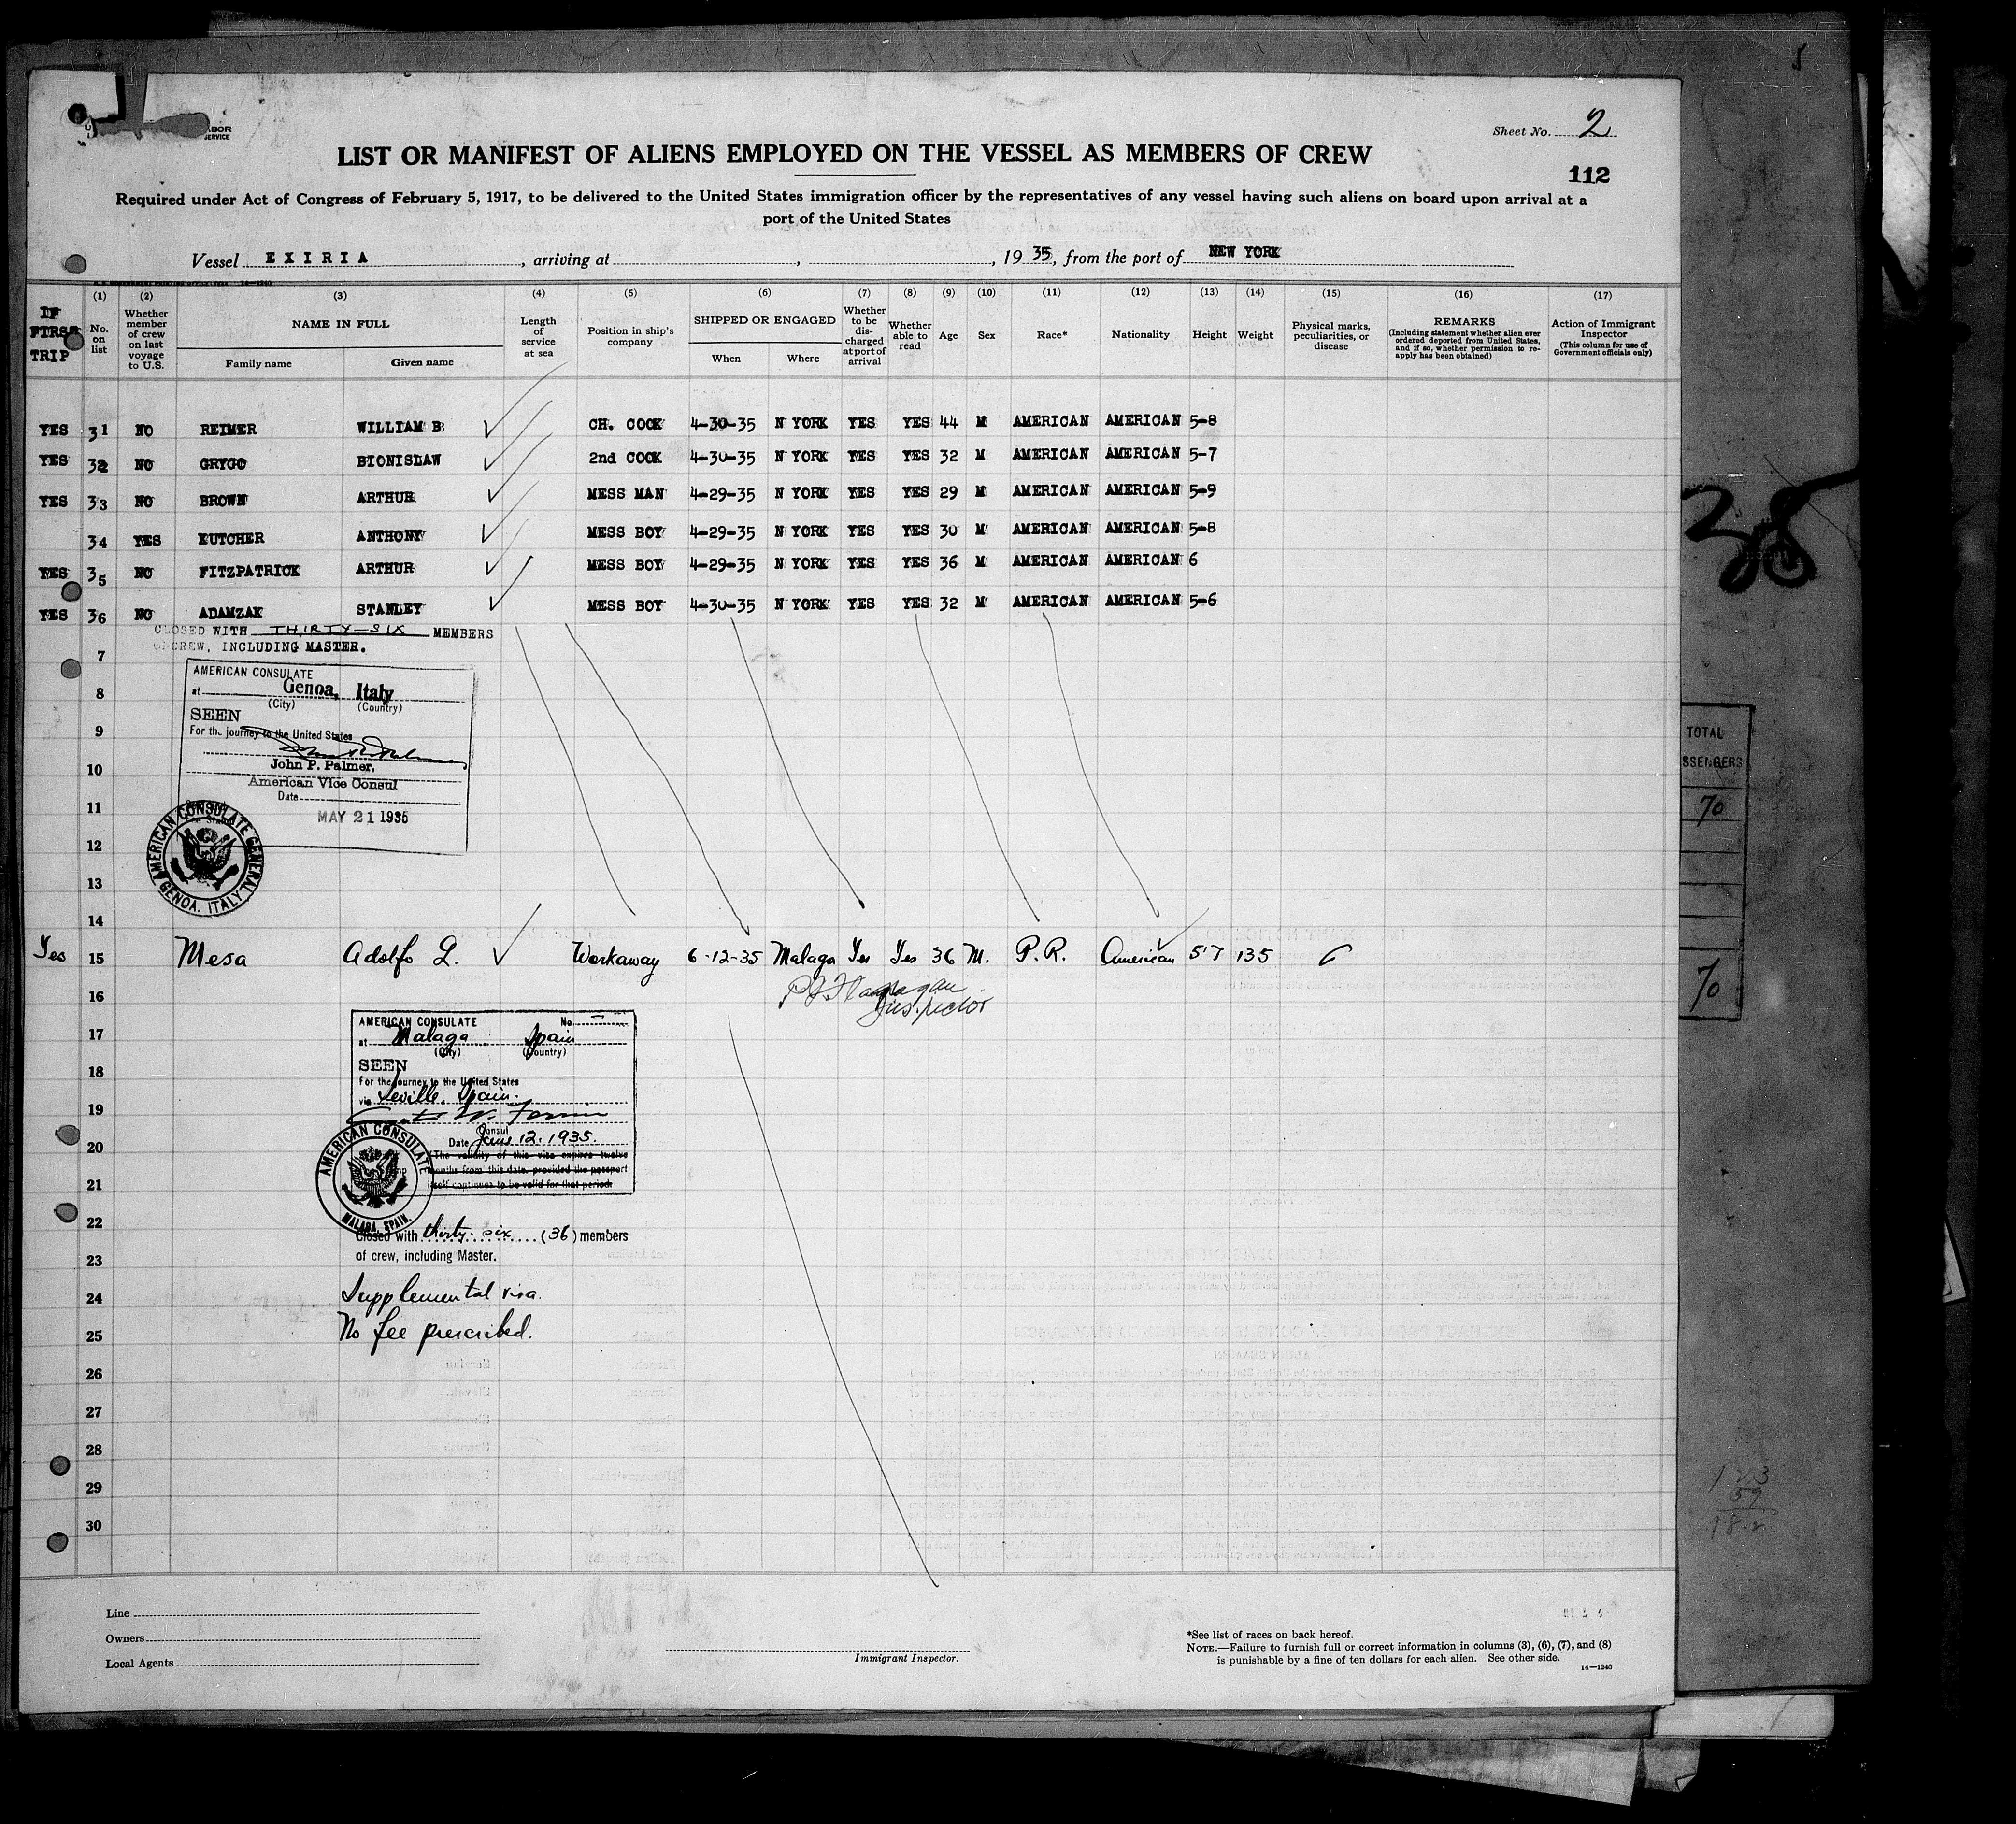 ABOR
SERVICE
Sheet No. 2
LIST OR MANIFEST OF ALIENS EMPLOYED ON THE VESSEL AS MEMBERS OF CREW
112
Required under Act of Congress of February 5, 1917, to be delivered to the United States immigration officer by the representatives of any vessel having such aliens on board upon arrival at a
port of the United States
Vessel EXIRIA, arriving at , , 1935, from the port of NEW YORK
IF FIRST TRIP
(1) No. on list
(2) Whether member of crew on last voyage to U.S.
(3) NAME IN FULL
Family name Given name
(4) Length of service at sea
(5) Position in ship's company
(6) SHIPPED OR ENGAGED
When Where
(7) Whether to be discharged at port of arrival
(8) Whether able to read
(9) Age
(10) Sex
(11) Race*
(12) Nationality
(13) Height
(14) Weight
(15) Physical marks, peculiarities, or disease
(16) REMARKS (Including statement whether alien ever ordered deported from United States, and if so, whether permission to reapply has been obtained)
(17) Action of Immigrant Inspector (This column for use of Government officials only)
YES 31 NO REIMER WILLIAM B CH. COOK 4-30-35 N YORK YES YES 44 M AMERICAN AMERICAN 5-8
YES 32 NO GRYGO BIONISLAW 2nd COOK 4-30-35 N YORK YES YES 32 M AMERICAN AMERICAN 5-7
YES 33 NO BROWN ARTHUR MESS MAN 4-29-35 N YORK YES YES 29 M AMERICAN AMERICAN 5-9
34 YES KUTCHER ANTHONY MESS BOY 4-29-35 N YORK YES YES 30 M AMERICAN AMERICAN 5-8
YES 35 NO FITZPATRICK ARTHUR MESS BOY 4-29-35 N YORK YES YES 36 M AMERICAN AMERICAN 6
YES 36 NO ADAMZAK STANLEY MESS BOY 4-30-35 N YORK YES YES 32 M AMERICAN AMERICAN 5-6
CLOSED WITH THIRTY-SIX MEMBERS
CREW, INCLUDING MASTER.
7
AMERICAN CONSULATE
at Genoa, Italy
(City) (Country)
8
SEEN
For the journey to the United States
9
John P. Palmer,
10
American Vice Consul
Date
11
MAY 21 1935
AMERICAN CONSULATE GENERAL
GENOA. ITALY
12
13
14
Yes 15 Mesa Adolfo L. Workaway 6-12-35 Malaga Yes Yes 36 M. P.R. American 5'7 135
16
Flannagan
Inspector
AMERICAN CONSULATE No.
17
at Malaga Spain
(City) (Country)
SEEN
18
For the journey to the United States
via Seville, Spain.
19
Consul
Date June 12. 1935.
20
The validity of this visa expires twelve
months from this date, provided the passport
itself continues to be valid for that period.
AMERICAN CONSULATE
MALAGA, SPAIN.
21
22
Closed with thirty-six (36) members
of crew, including Master.
23
24
Supplemental visa.
25
No fee prescribed.
26
27
28
29
30
Line
Owners
Local Agents
Immigrant Inspector.
*See list of races on back hereof.
NOTE.—Failure to furnish full or correct information in columns (3), (6), (7), and (8)
is punishable by a fine of ten dollars for each alien. See other side.
14—1240
TOTAL
SSENGERS
70
70